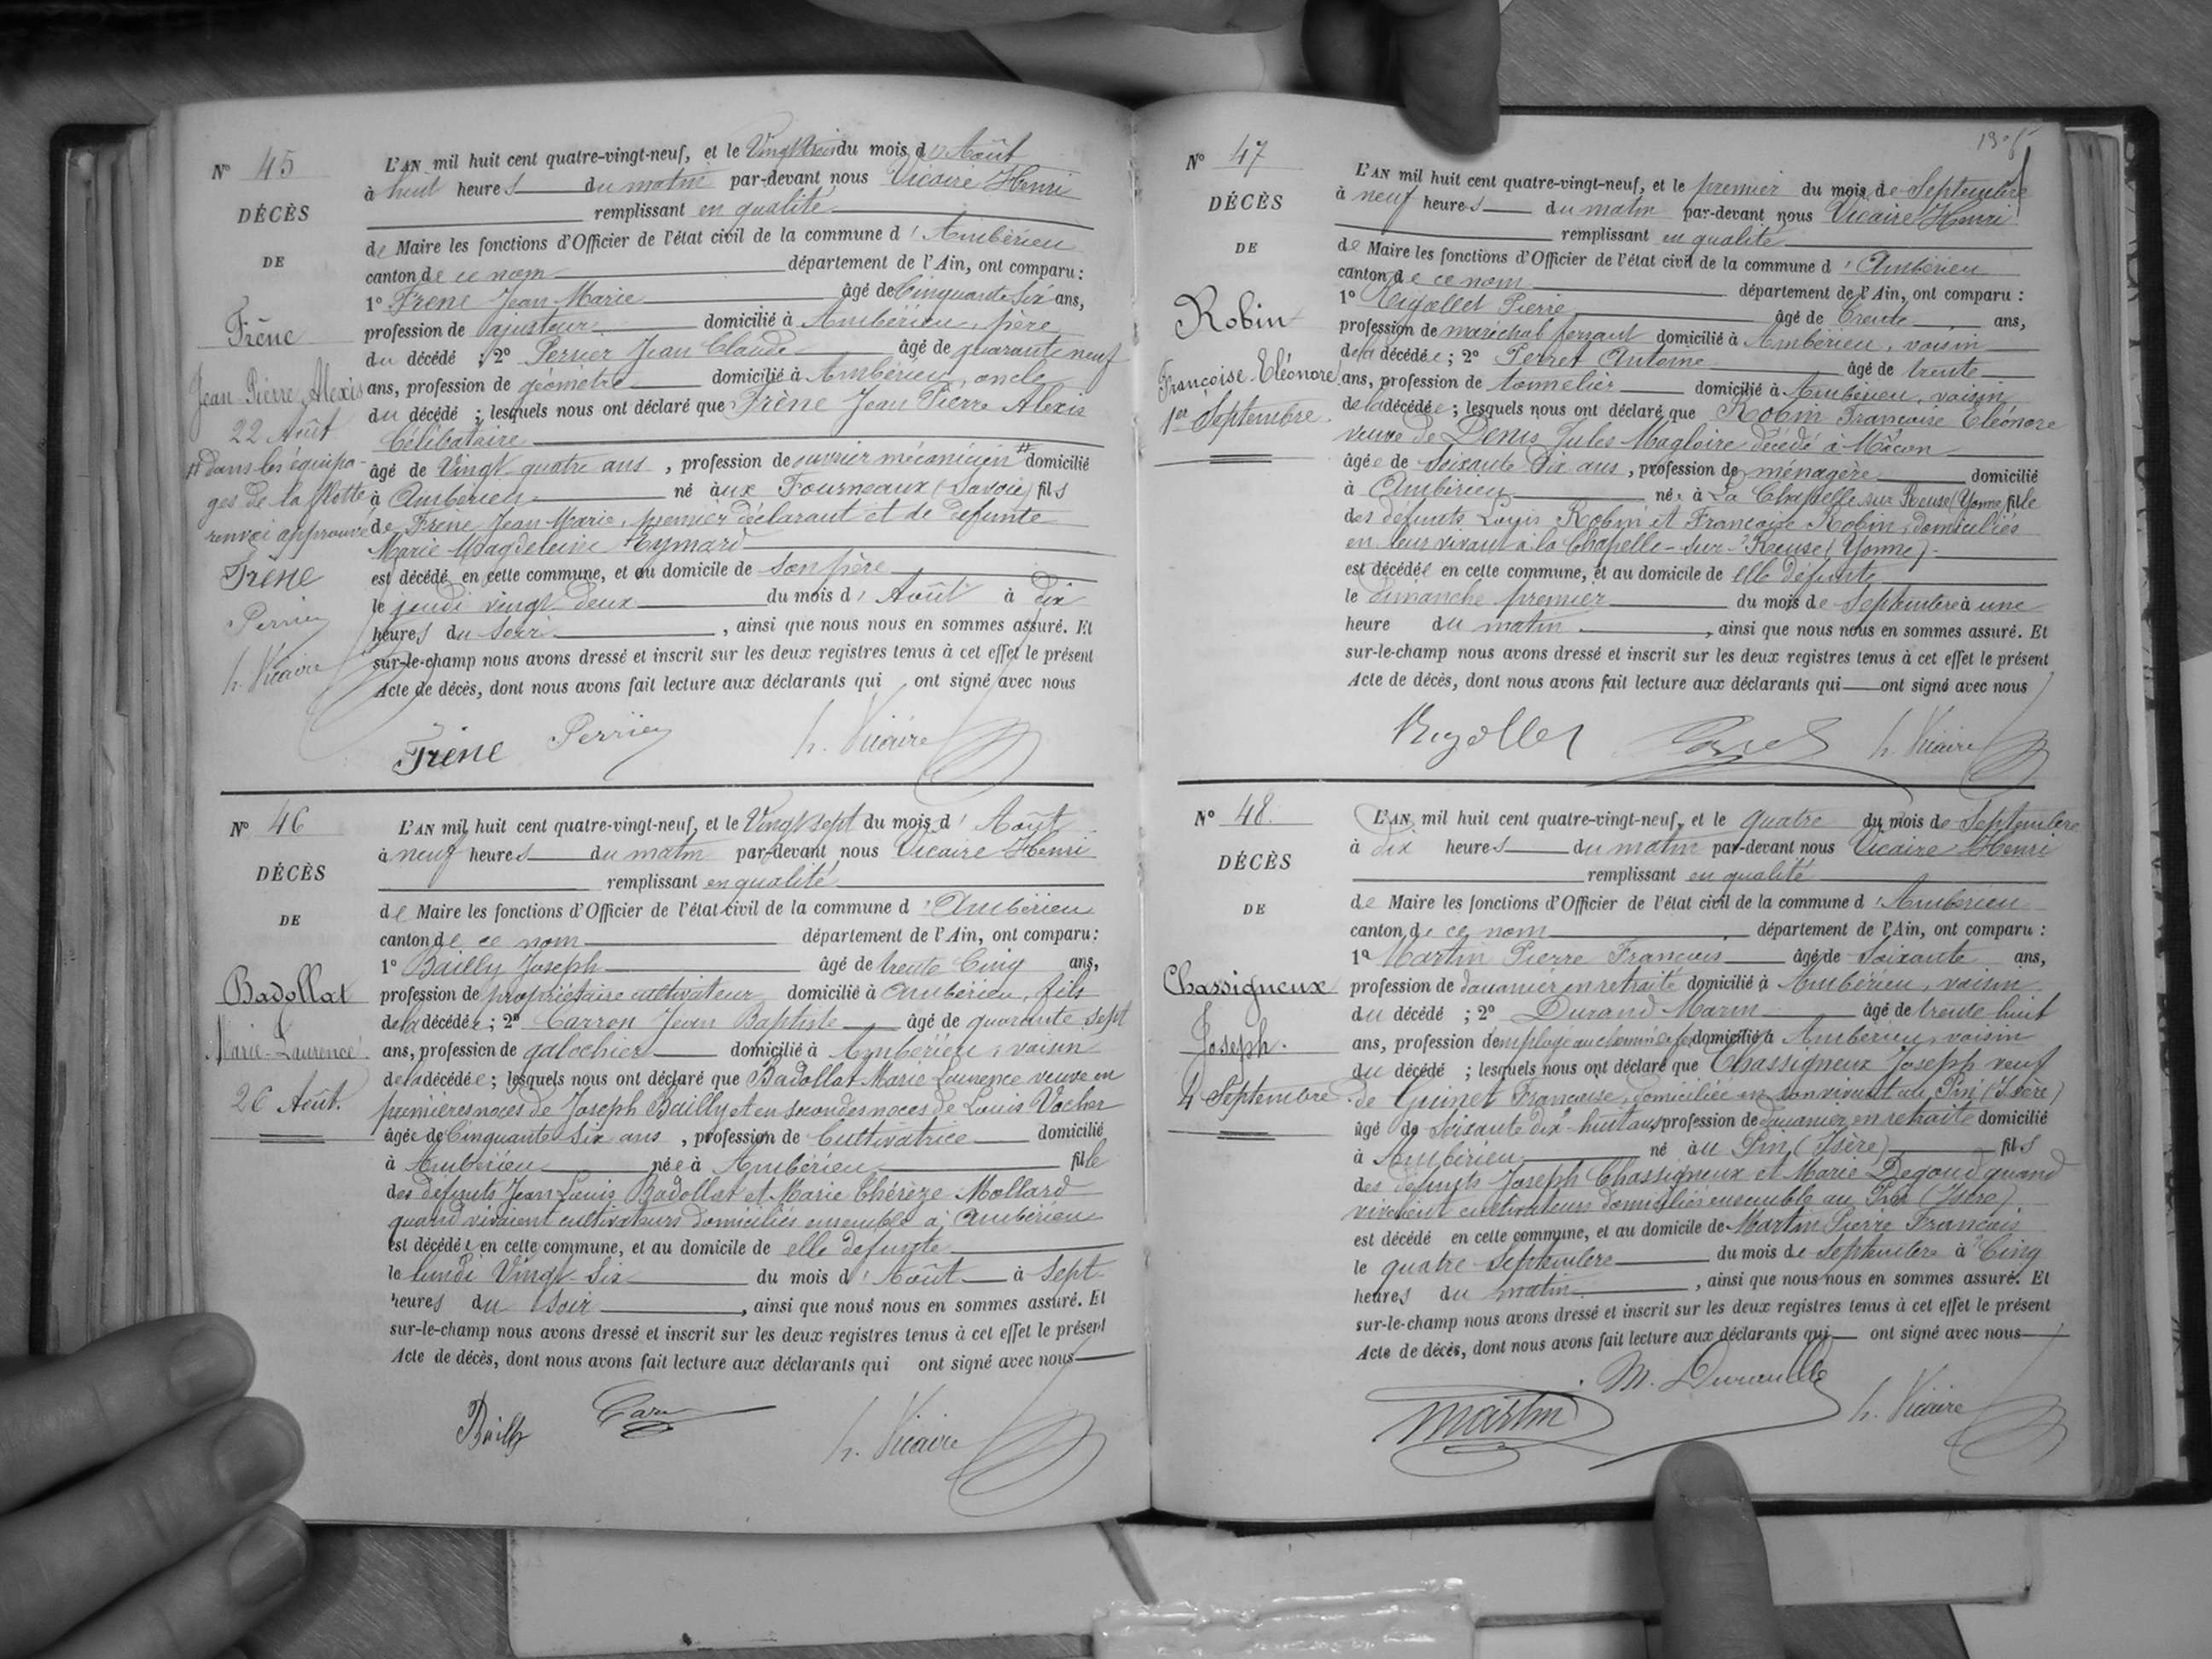 N° 45
DÉCÈS
DE
Frêne
Jean Pierre Alexis
22 Août
# dans les équipa-
ges de la flotte
renvoi approuvé
Frêne
Perrier
h. Vicaire
L'AN mil huit cent quatre-vingt-neuf, et le Vingt trois du mois d' Août
à huit heures du matin par-devant nous Vicaire Henri
remplissant en qualité
de Maire les fonctions d'Officier de l'état civil de la commune d' Ambérieu
canton de ce nom département de l'Ain, ont comparu :
1° Frêne Jean Marie âgé de Cinquante six ans,
profession de ajusteur domicilié à Ambérieu, père
du décédé ; 2° Perrier Jean Claude âgé de quarante neuf
ans, profession de géomètre domicilié à Ambérieu, oncle
du décédé ; lesquels nous ont déclaré que Frêne Jean Pierre Alexis
Célibataire
âgé de Vingt quatre ans, profession de ouvrier mécanicien # domicilié
à Ambérieu né aux Fourneaux (Savoie) fils
de Frêne Jean Marie, premier déclarant et de défunte
Marie Magdeleine Aymard
est décédé en cette commune, et au domicile de son père
le jeudi vingt deux du mois d' Août à dix
heures du soir, ainsi que nous nous en sommes assuré. Et
sur-le-champ nous avons dressé et inscrit sur les deux registres tenus à cet effet le présent
Acte de décès, dont nous avons fait lecture aux déclarants qui ont signé avec nous
Frêne Perrier h. Vicaire
N° 46
DÉCÈS
DE
Badollat
Marie-Laurence
26 Août.
L'AN mil huit cent quatre-vingt-neuf, et le Vingt sept du mois d' Août
à neuf heures du matin par-devant nous Vicaire Henri
remplissant en qualité
de Maire les fonctions d'Officier de l'état civil de la commune d' Ambérieu
canton de ce nom département de l'Ain, ont comparu :
1° Bailly Joseph âgé de trente Cinq ans,
profession de propriétaire cultivateur domicilié à Ambérieu, fils
de la décédée ; 2° Carron Jean Baptiste âgé de quarante sept
ans, profession de galochier domicilié à Ambérieu, voisin
de la décédée ; lesquels nous ont déclaré que Badollat Marie Laurence veuve en
premières noces de Joseph Bailly et en secondes noces de Louis Vacher
âgée de Cinquante six ans, profession de Cultivatrice domicilié
à Ambérieu née à Ambérieu fille
des défunts Jean Louis Badollat et Marie Thérèze Mollard
quand vivaient cultivateurs domiciliés ensemble à Ambérieu
est décédée en cette commune, et au domicile de elle défunte
le lundi Vingt Six du mois d' Août à sept
heures du soir, ainsi que nous nous en sommes assuré. Et
sur-le-champ nous avons dressé et inscrit sur les deux registres tenus à cet effet le présent
Acte de décès, dont nous avons fait lecture aux déclarants qui ont signé avec nous
Bailly h. Vicaire
N° 47
DÉCÈS
DE
Robin
Françoise-Eléonore
1er Septembre.
L'AN mil huit cent quatre-vingt-neuf, et le premier du mois de Septembre
à neuf heures du matin par-devant nous Vicaire Henri
remplissant en qualité
de Maire les fonctions d'Officier de l'état civil de la commune d' Ambérieu
canton de ce nom département de l'Ain, ont comparu :
1° Rigollet Pierre âgé de trente ans,
profession de maréchal ferrant domicilié à Ambérieu, voisin
de la décédée ; 2° Perret Antoine âgé de trente
ans, profession de tonnelier domicilié à Ambérieu, voisin
de la décédée ; lesquels nous ont déclaré que Robin Françoise Eléonore
veuve de Denis Jules Magloire décédé à Mâcon
âgée de soixante dix ans, profession de ménagère domicilié
à Ambérieu née à La Chapelle sur (Yonne) fille
des défunts Louis Robin et Françoise Robin, domiciliés
en leur vivant à la Chapelle-sur- (Yonne)
est décédée en cette commune, et au domicile de elle défunte
le dimanche premier du mois de Septembre à une
heure du matin, ainsi que nous nous en sommes assuré. Et
sur-le-champ nous avons dressé et inscrit sur les deux registres tenus à cet effet le présent
Acte de décès, dont nous avons fait lecture aux déclarants qui ont signé avec nous
Rigollet h. Vicaire
N° 48.
DÉCÈS
DE
Chassigneux
Joseph.
4 Septembre.
L'AN mil huit cent quatre-vingt-neuf, et le quatre du mois de Septembre
à dix heures du matin par-devant nous Vicaire Henri
remplissant en qualité
de Maire les fonctions d'Officier de l'état civil de la commune d' Ambérieu
canton de ce nom département de l'Ain, ont comparu :
1° Martin Pierre François âgé de soixante ans,
profession de douanier en retraite domicilié à Ambérieu, voisin
du décédé ; 2° Durand Marin âgé de trente huit
ans, profession de employé au chemin de fer domicilié à Ambérieu, voisin
du décédé ; lesquels nous ont déclaré que Chassigneux Joseph veuf
de Guinet Françoise, domiciliée en son vivant au Pin (Isère)
âgé de soixante dix-huit ans profession de douanier en retraite domicilié
à Ambérieu né au Pin (Isère) fils
des défunts Joseph Chassigneux et Marie Degoud quand
vivaient cultivateurs domiciliés ensemble au Pin (Isère)
est décédé en cette commune, et au domicile de Martin Pierre François
le quatre Septembre du mois de Septembre à Cinq
heures du matin, ainsi que nous nous en sommes assuré. Et
sur-le-champ nous avons dressé et inscrit sur les deux registres tenus à cet effet le présent
Acte de décès, dont nous avons fait lecture aux déclarants qui ont signé avec nous
Martin h. Vicaire